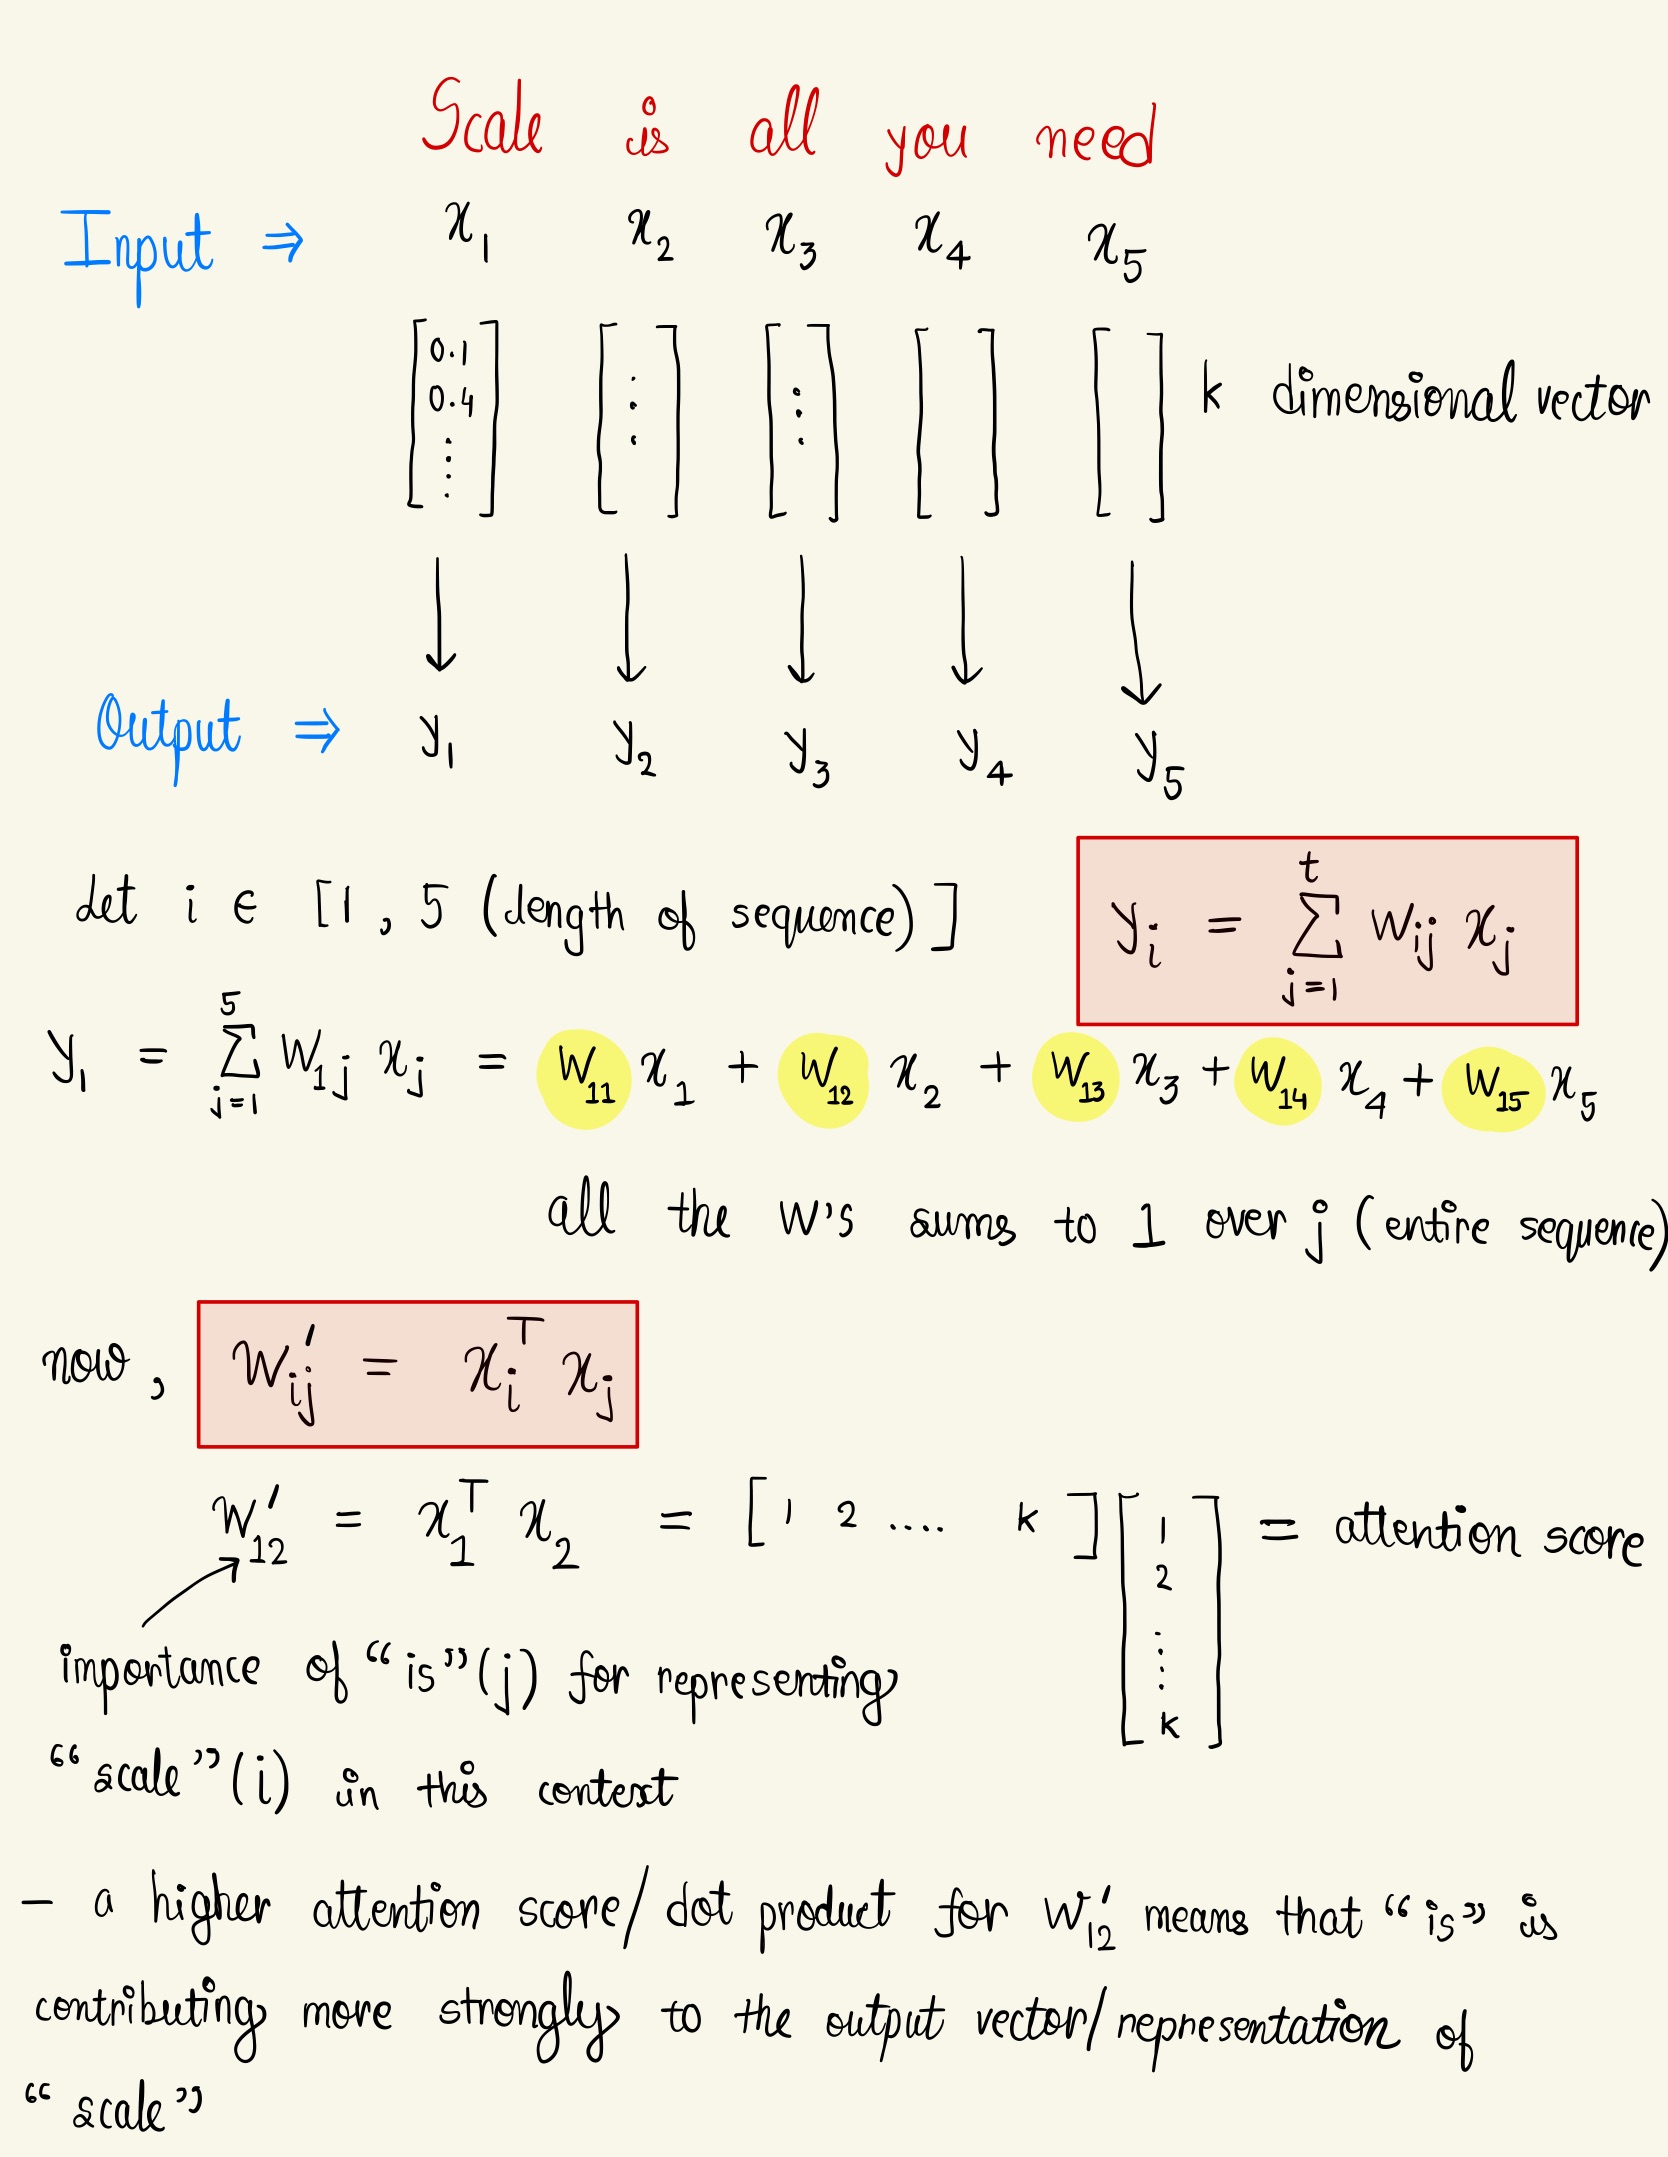 Scale is all you need
Input ⇒ x₁ x₂ x₃ x₄ x₅
[0.1 0.4 ⋮] [⋮] [⋮] [ ] [ ] k dimensional vector
Output ⇒ y₁ y₂ y₃ y₄ y₅
Let i ∈ [1, 5 (length of sequence)]
yᵢ = Σ_{j=1}^{t} wᵢⱼ xⱼ
y₁ = Σ_{j=1}^{5} W₁ⱼ xⱼ = W₁₁ x₁ + W₁₂ x₂ + W₁₃ x₃ + W₁₄ x₄ + W₁₅ x₅
all the W's sums to 1 over j (entire sequence)
now, W'ᵢⱼ = xᵢᵀ xⱼ
W'₁₂ = x₁ᵀ x₂ = [1 2 .... k] [1 2 ⋮ k] = attention score
importance of “is” (j) for representing
“scale” (i) in this context
– a higher attention score/dot product for W'₁₂ means that “is” is
contributing more strongly to the output vector/representation of
“scale”